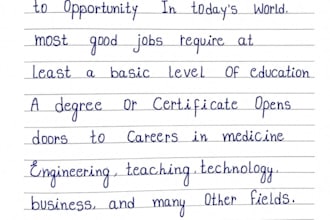 to Opportunity In today's World.
most good jobs require at
Least a basic level Of education
A degree Or Certificate Opens
doors to Careers in medicine
Engineering, teaching, technology,
business, and many Other fields.